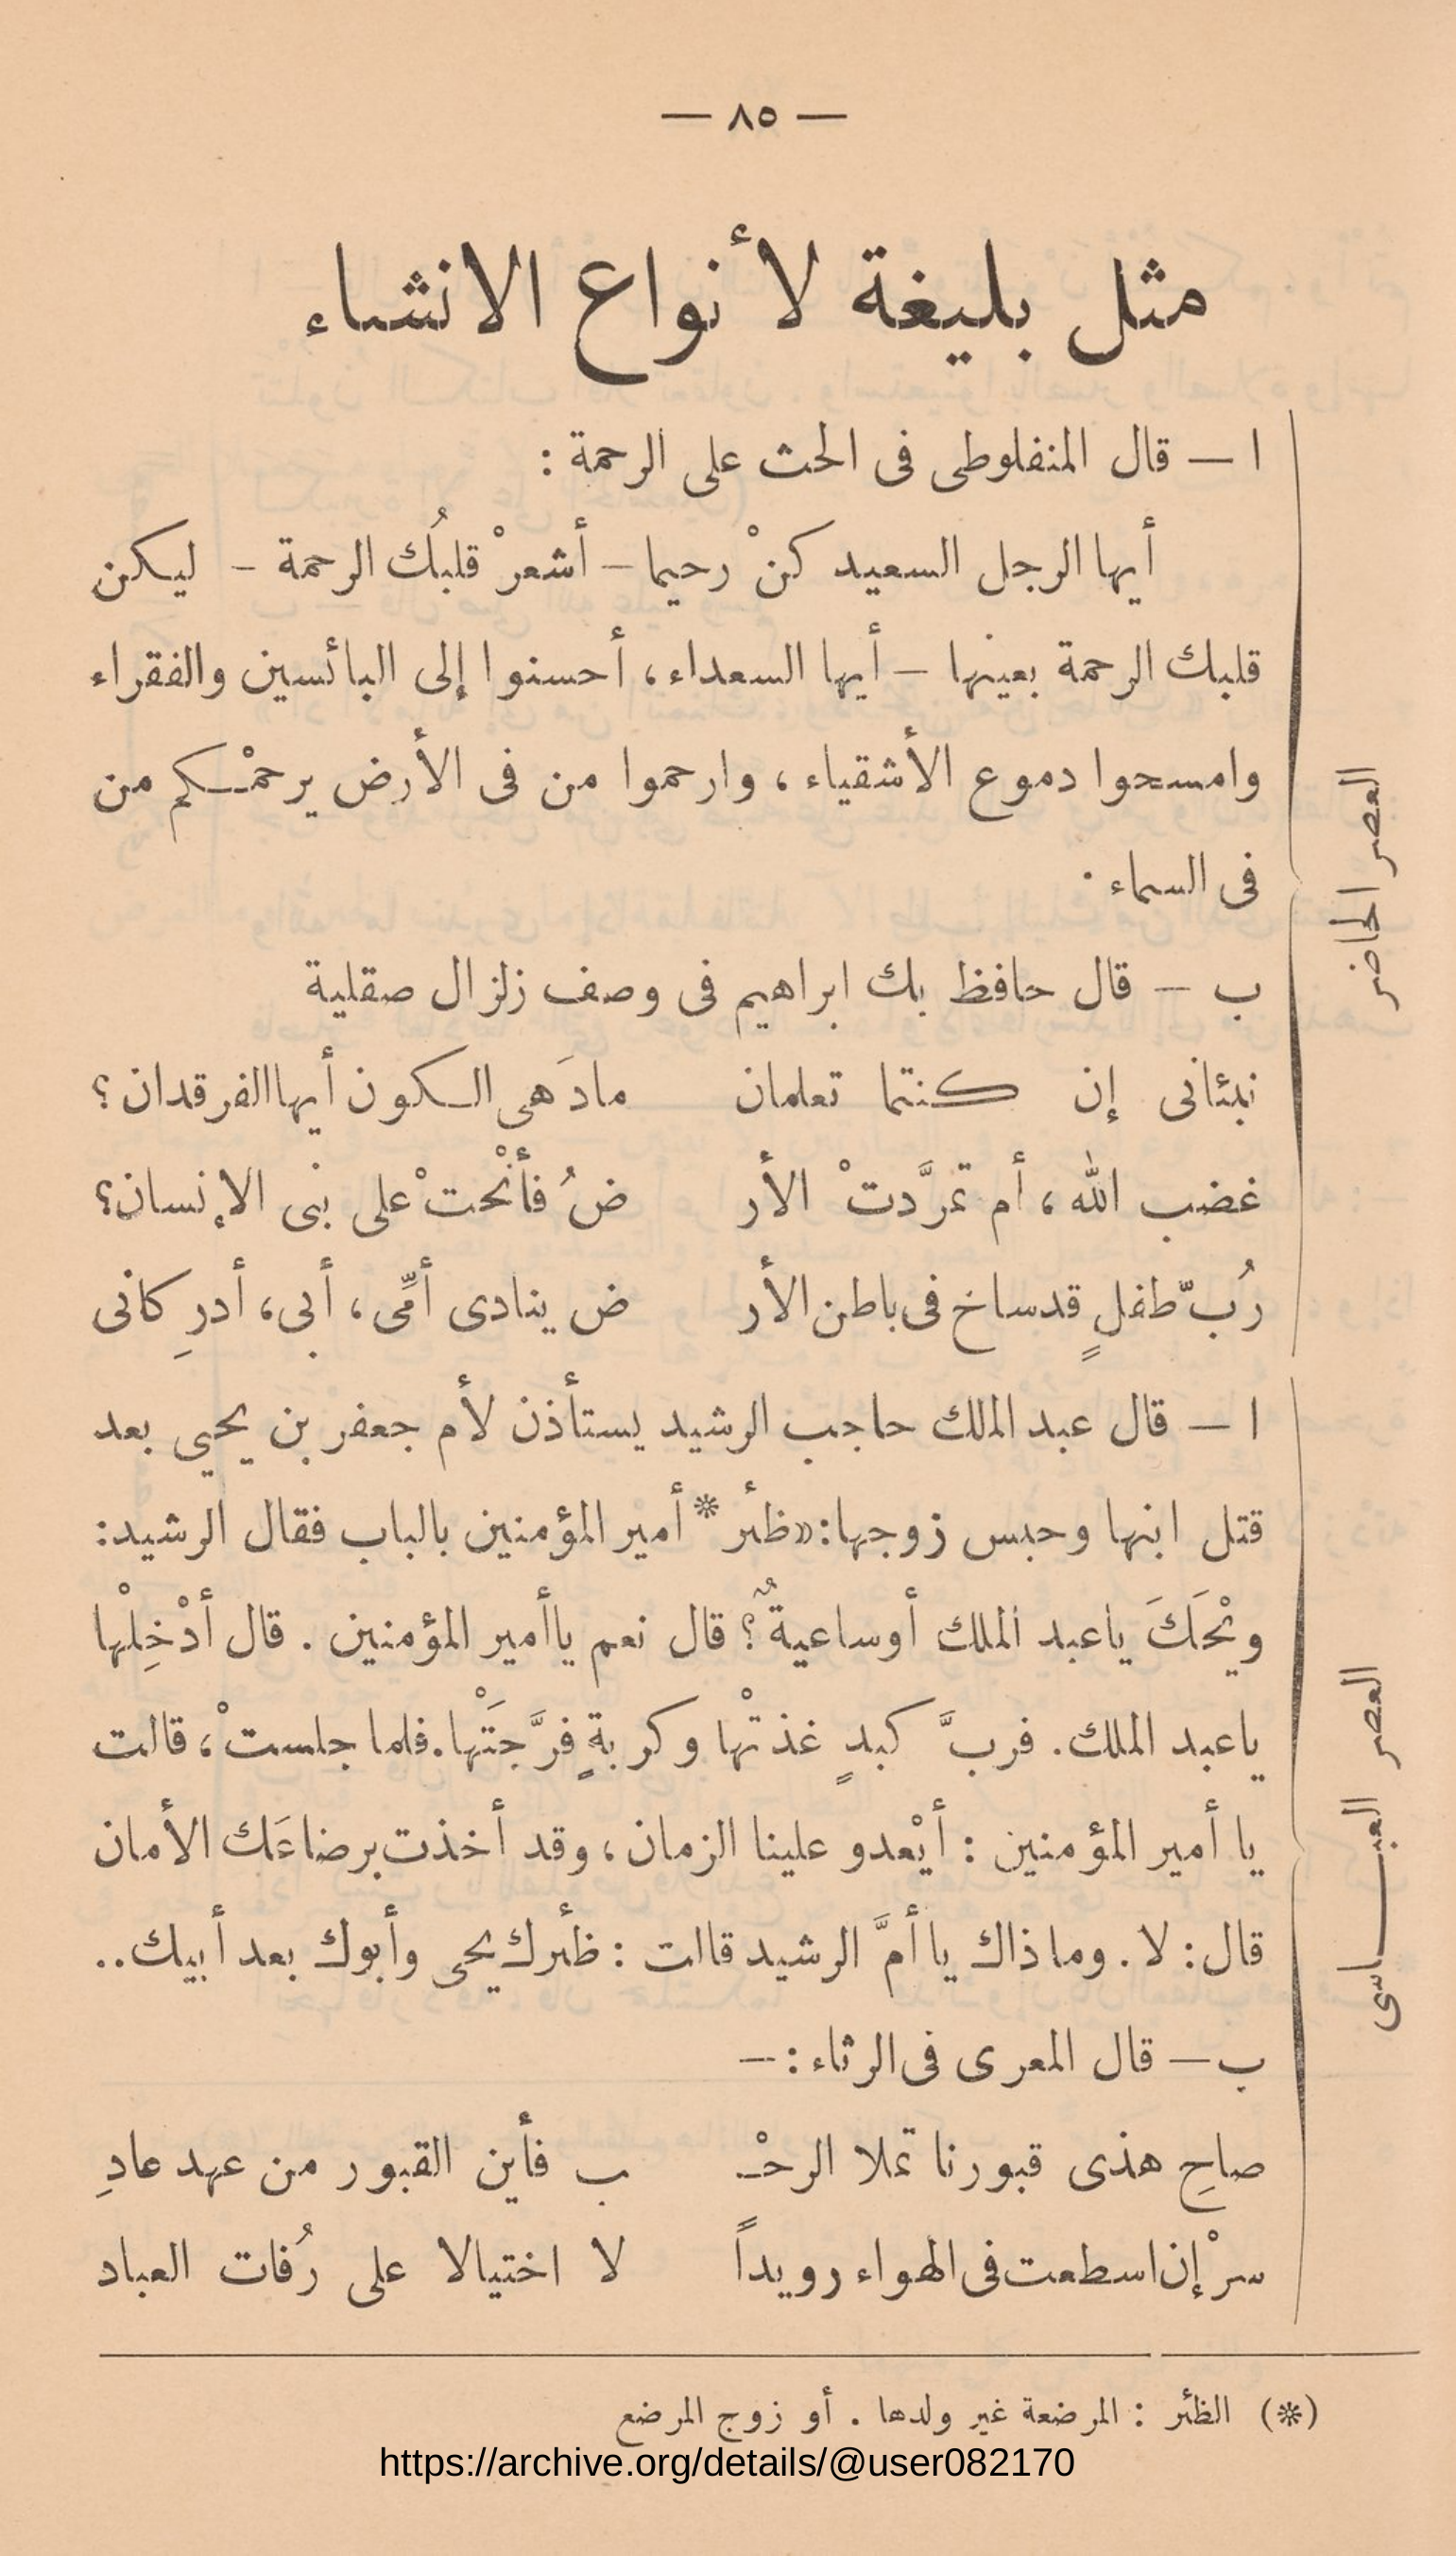 — ٨٥ —
مثل بليغة لأنواع الانشاء
العصر الحاضر
ا — قال المنفلوطى فى الحث على الرحمة :
أيها الرجل السعيد كنْ رحيما — أشعرْ قلبُك الرحمة — ليكن
قلبك الرحمة بعينها — أيها السعداء، أحسنوا إلى البائسين والفقراء
وامسحوا دموع الأشقياء ، وارحموا من فى الأرض يرحمْكم من
فى السماء .
ب — قال حافظ بك ابراهيم فى وصف زلزال صقلية
نبئانى إن كنتما تعلمان مادَهى الكون أيها الفرقدان ؟
غضب الله ، أم تمرَّدتْ الأر ضُ فأنْحتْ على بنى الإنسان؟
رُبّ طفلٍ قد ساخ فى باطن الأر ض ينادى أمِّى، أبى، أدرِكانى
العصر العباسى
ا — قال عبد الملك حاجب الرشيد يستأذن لأم جعفر بن يحيي بعد
قتل ابنها وحبس زوجها: «ظئر * أمير المؤمنين بالباب فقال الرشيد:
ويْحَكَ ياعبد الملك أوساعيةٌ ؟ قال نعم ياأمير المؤمنين . قال أدْخِلْها
ياعبد الملك. فربَّ كبدٍ غذتْها وكربةٍ فرَّجَتْها. فلما جلستْ، قالت
يا أمير المؤمنين : أيْعدو علينا الزمان ، وقد أخذت برضاعَك الأمان
قال: لا . وماذاك يا أمَّ الرشيد قالت : ظئرك يحيى وأبوك بعد أبيك..
ب — قال المعرى فى الرثاء : —
صاحِ هذى قبورنا تملا الرحْـ ب فأين القبور من عهد عادِ
سرْ إن اسطعت فى الهواء رويداً لا اختيالا على رُفات العباد
(*) الظئر : المرضعة غير ولدها . أو زوج المرضع
https://archive.org/details/@user082170